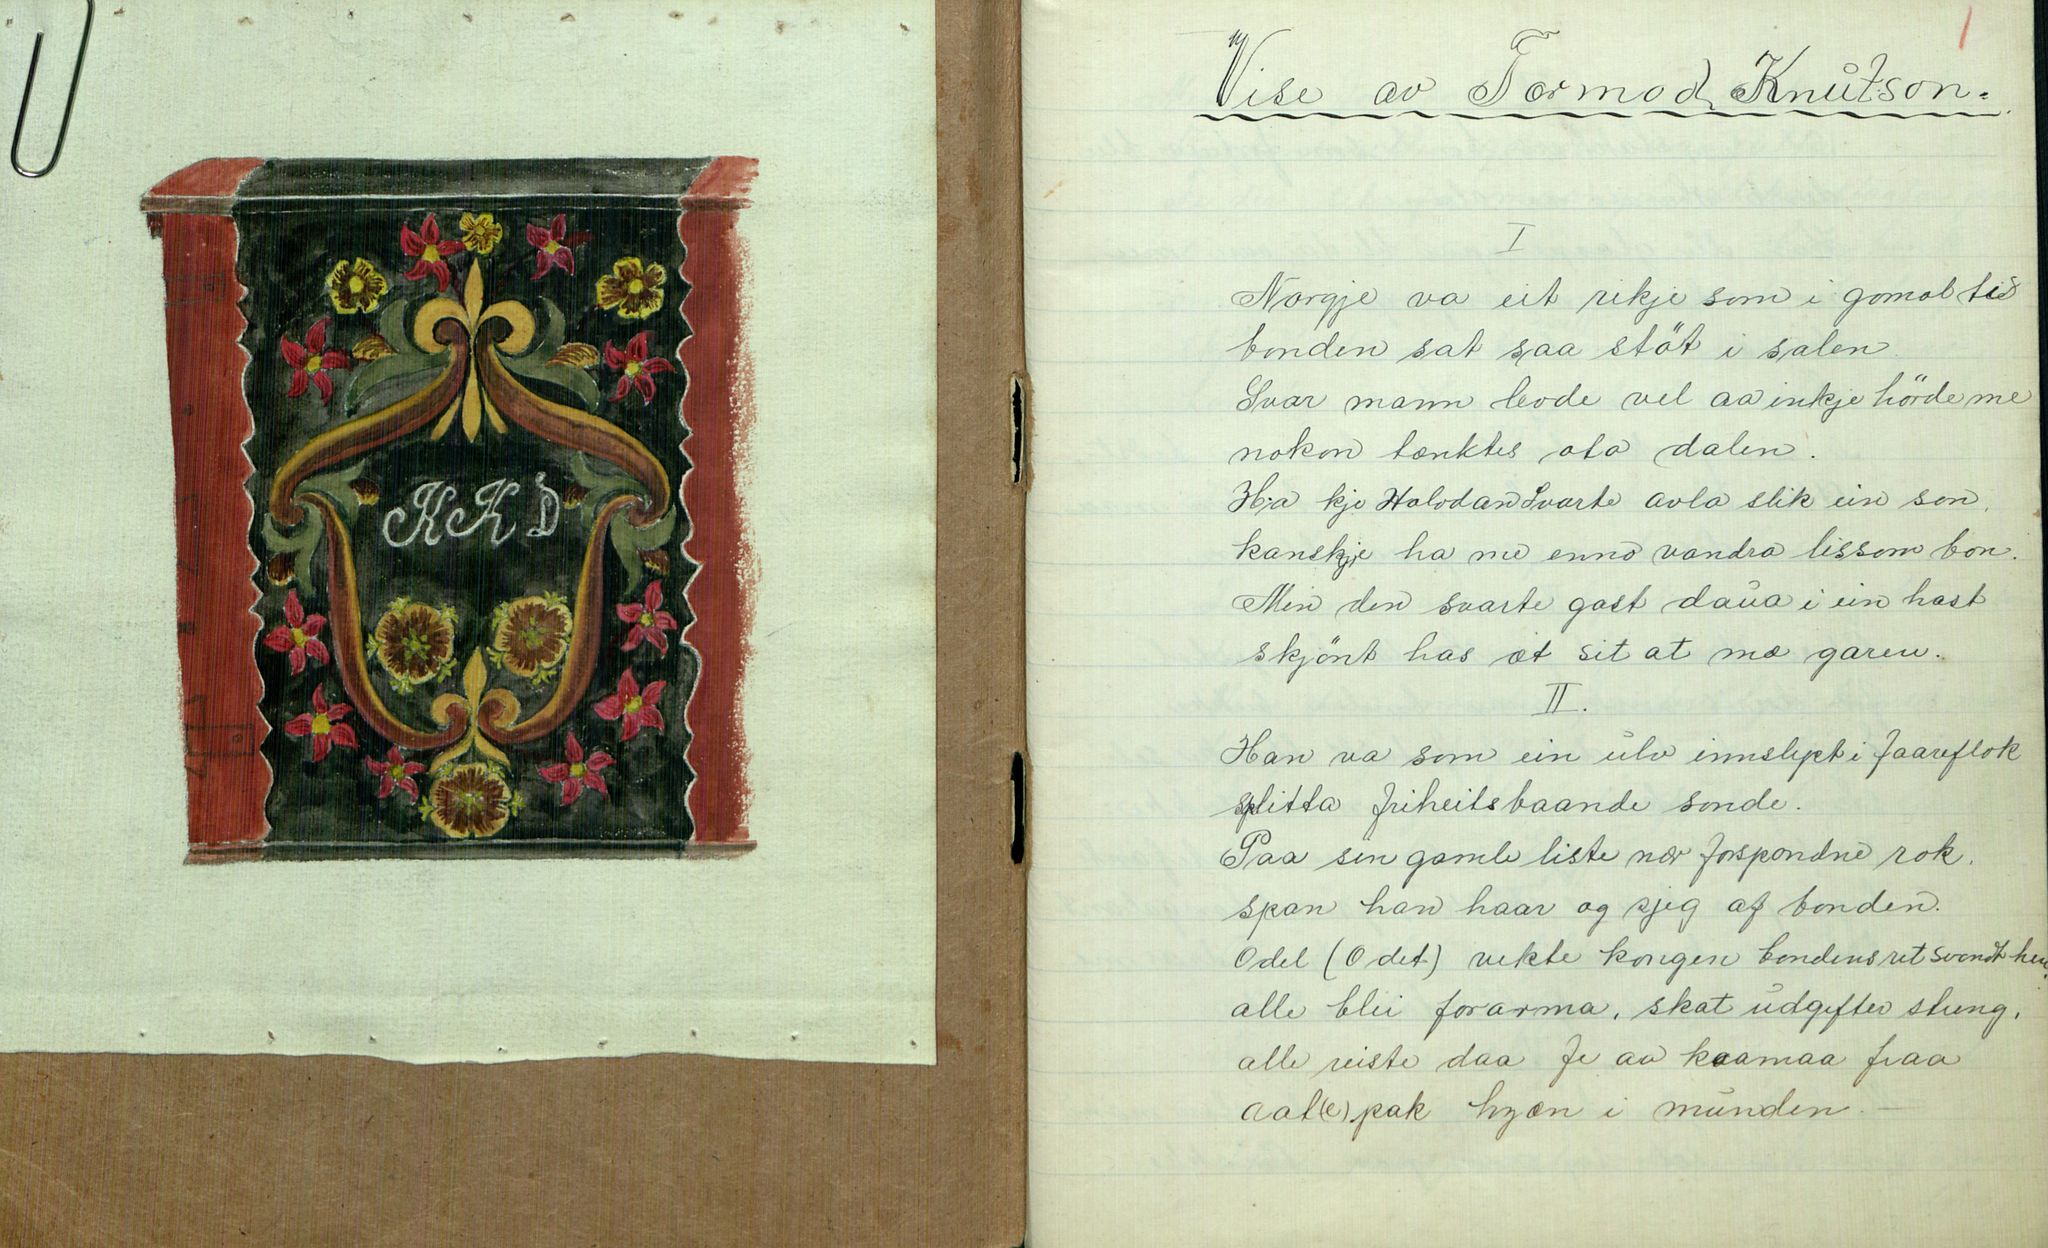 KKD
1
Vise av Tormod Knutson.
I
Norgje va eit rikje som i gomol tid
bonden sat saa stöt i salen
Svar mann levde vel aa inkje hörde me
nokon tenktes ota dalen.
Ha kje Halvdan Svarte avla slik ein son,
kanskje ha me enno vandra lissom bon.
Men den svarte gast daua i ein hast
skjönt has æt sit at mæ garen.
II.
Han va som ein ulv innslept i faareflok
splitta friheitsbaande sonde.
Paa sin gamle liste nær forspondne rok,
span han haar og sjeg af bonden.
Odel (Odet) vekte kongen bondens ret svondt hen,
alle blei forarma, skat udgifter streng,
alle reiste daa fe av kaamaa fraa
aat(e)pak hyæn i munden. —